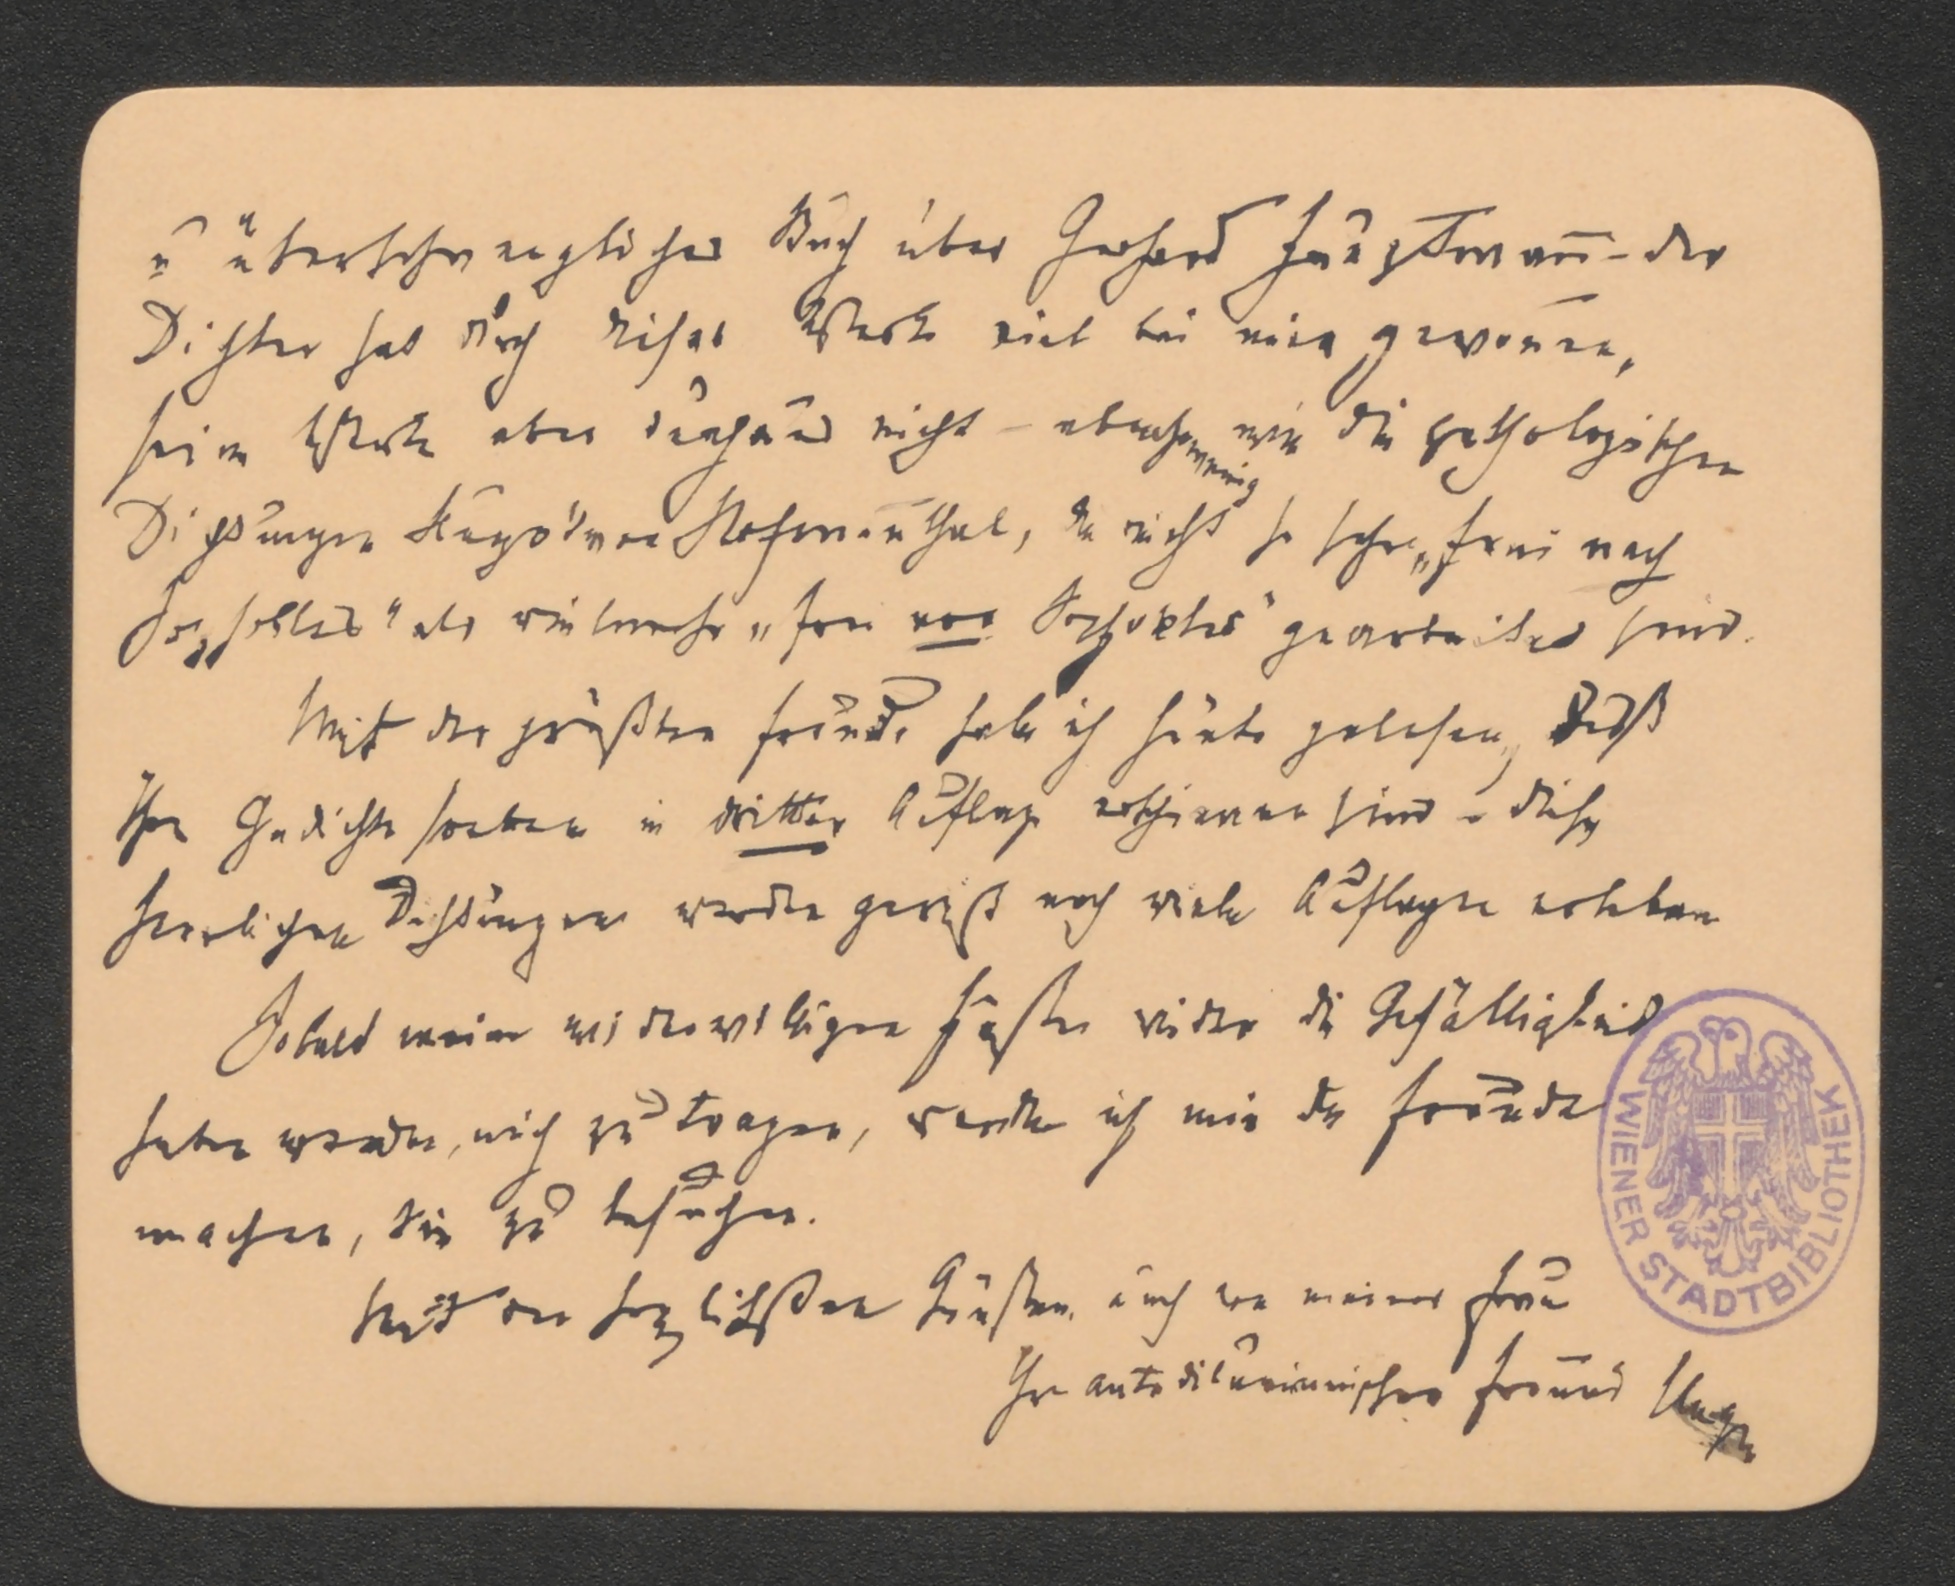 u überschwengliches Buch über Gerhard Hauptmann – der
Dichter hat durch dieses Werk viel bei mir gewonnen,
seine Werke aber durchaus nicht – ebensowenig wie die pathologischen
Dichtungen Hugo's von Hofmannthal, die nicht so sehr „frei nach
Sophokles" als vielmehr „frei von Sophokles" gearbeitet sind.
Mit der größten Freude habe ich heute gelesen, daß
Ihre Gedichte soeben in dritter Auflage erschienen sind – diese
herrlichen Dichtungen werden gewiß noch viele Auflagen erleben
Sobald meine widerwilligen Füße wieder die Gefälligkeit
haben werden, mich zu tragen, werde ich mir die Freude
machen, Sie zu besuchen.
Mit den herzlichsten Grüßen, auch von meiner Frau
Ihr antediluvianischer Freund Unger
WIENER STADTBIBLIOTHEK